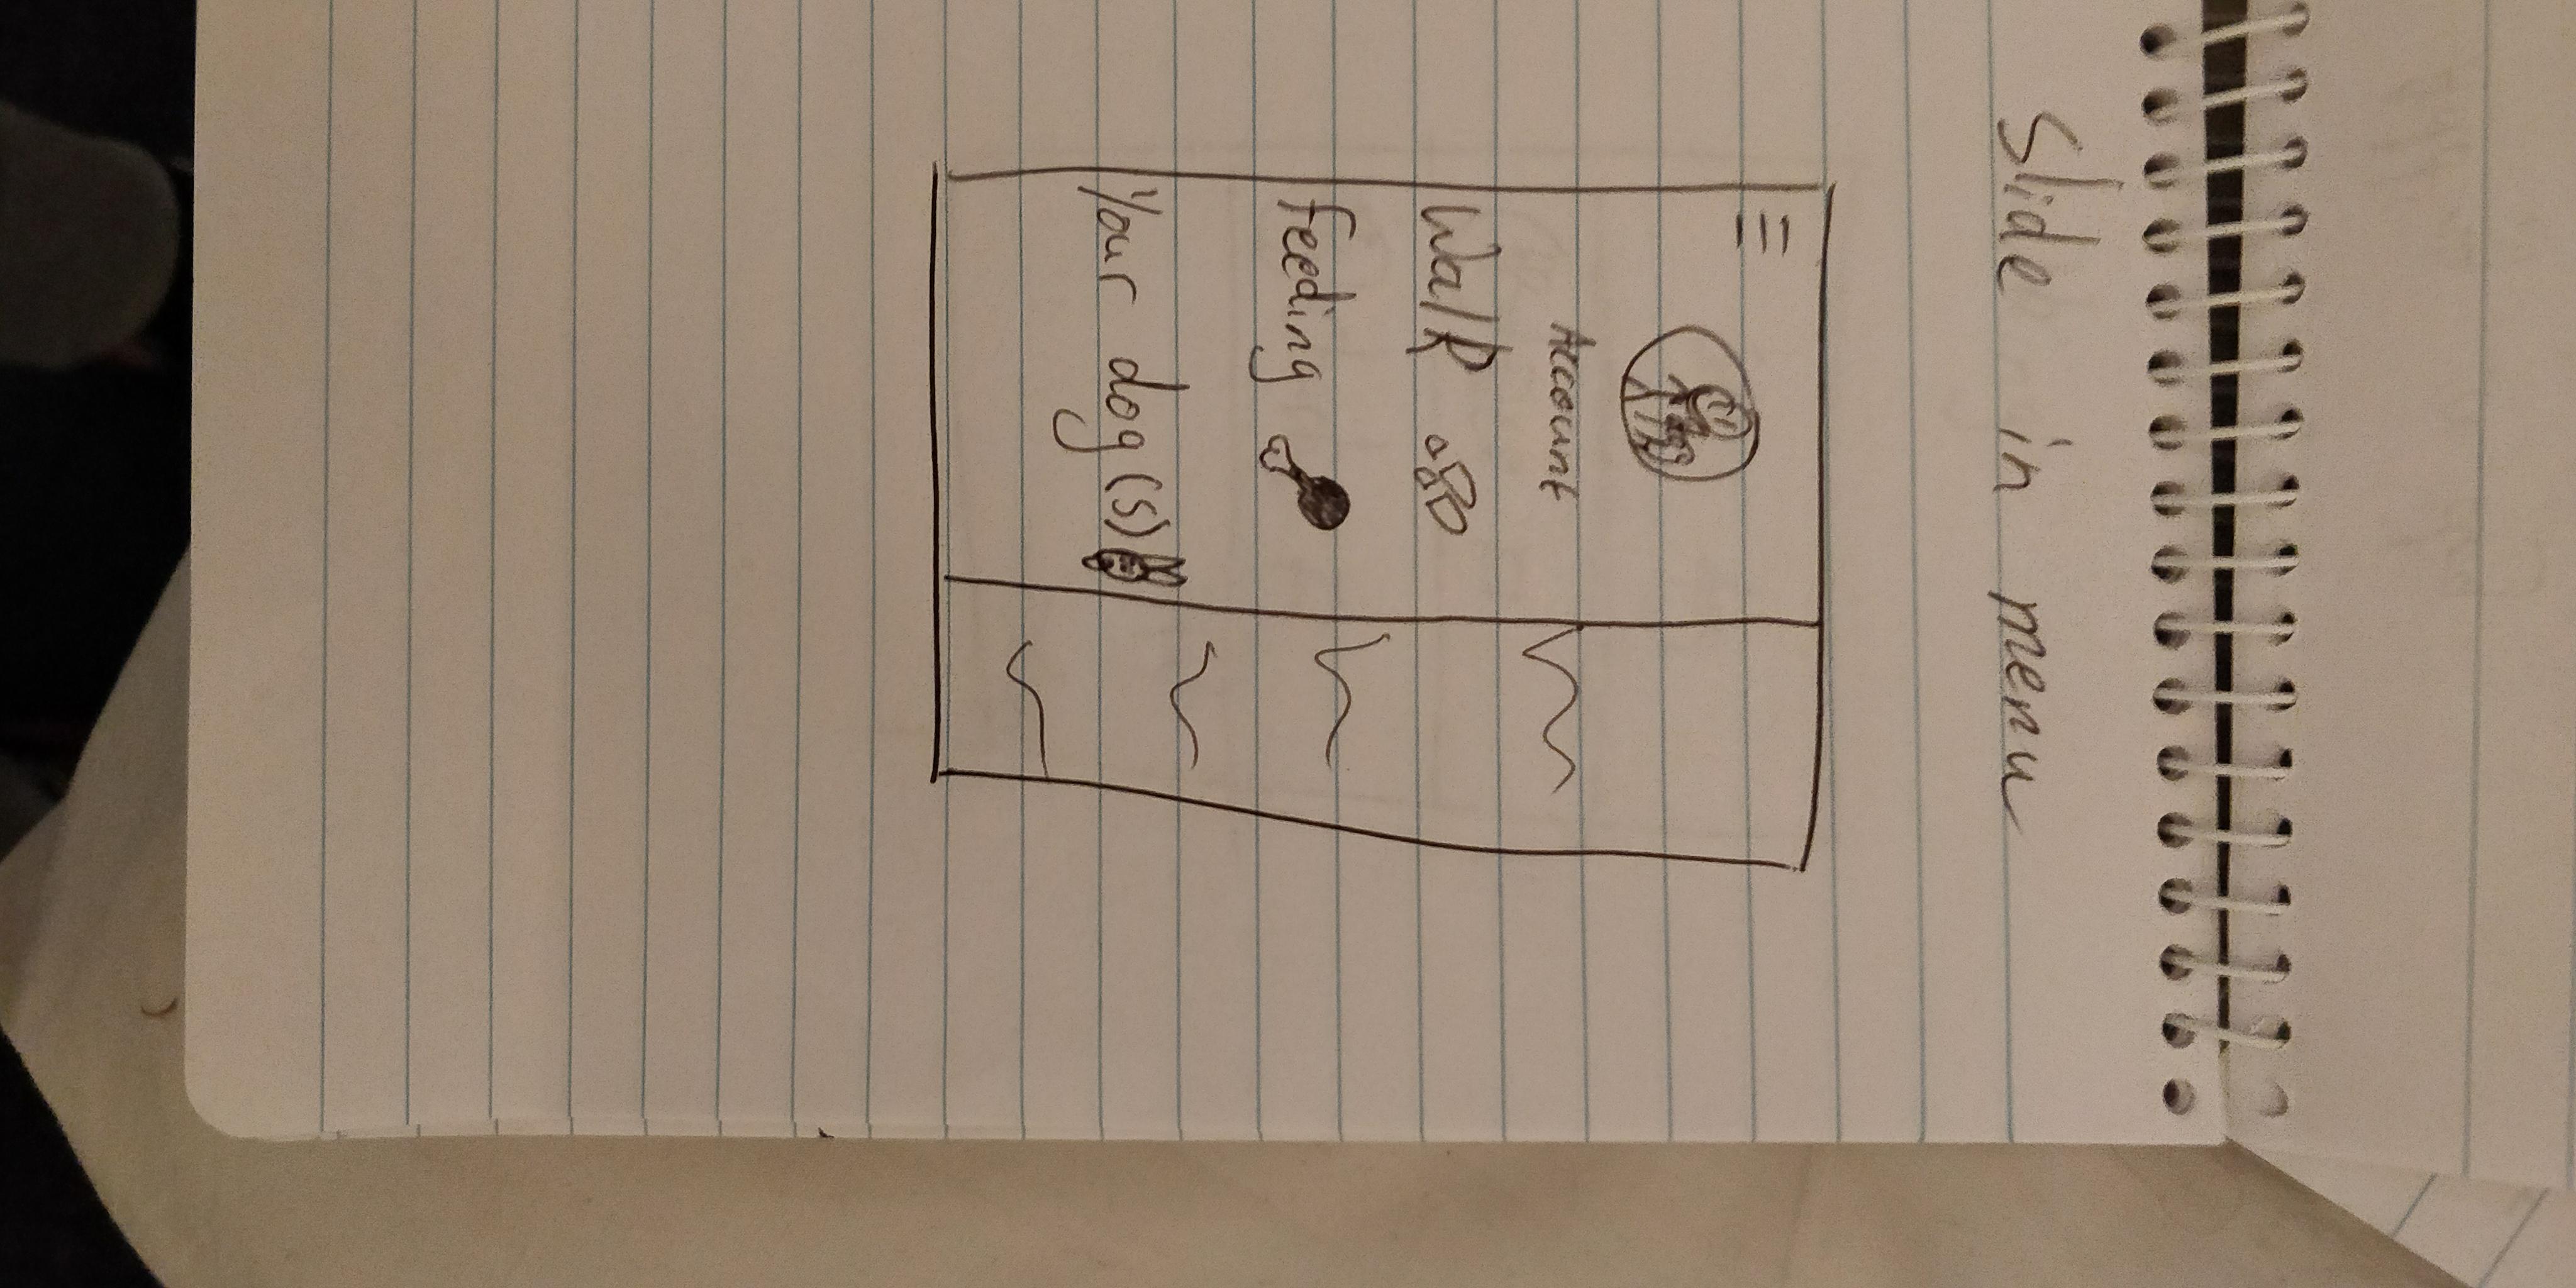 Slide in menu
Account
Walk
Feeding
Your dog(s)